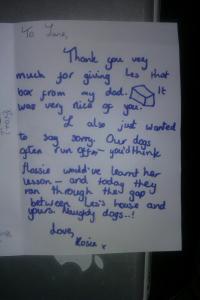 To Jane,
Thank you very
much for giving Les that
box from my dad. It
was very nice of you.
I also just wanted
to say sorry. Our dogs
often run off - you'd think
Flossie would've learnt her
lesson - and today they
ran through the gap
between Les's house and
yours. Naughty dogs..!
Love,
Rosie x